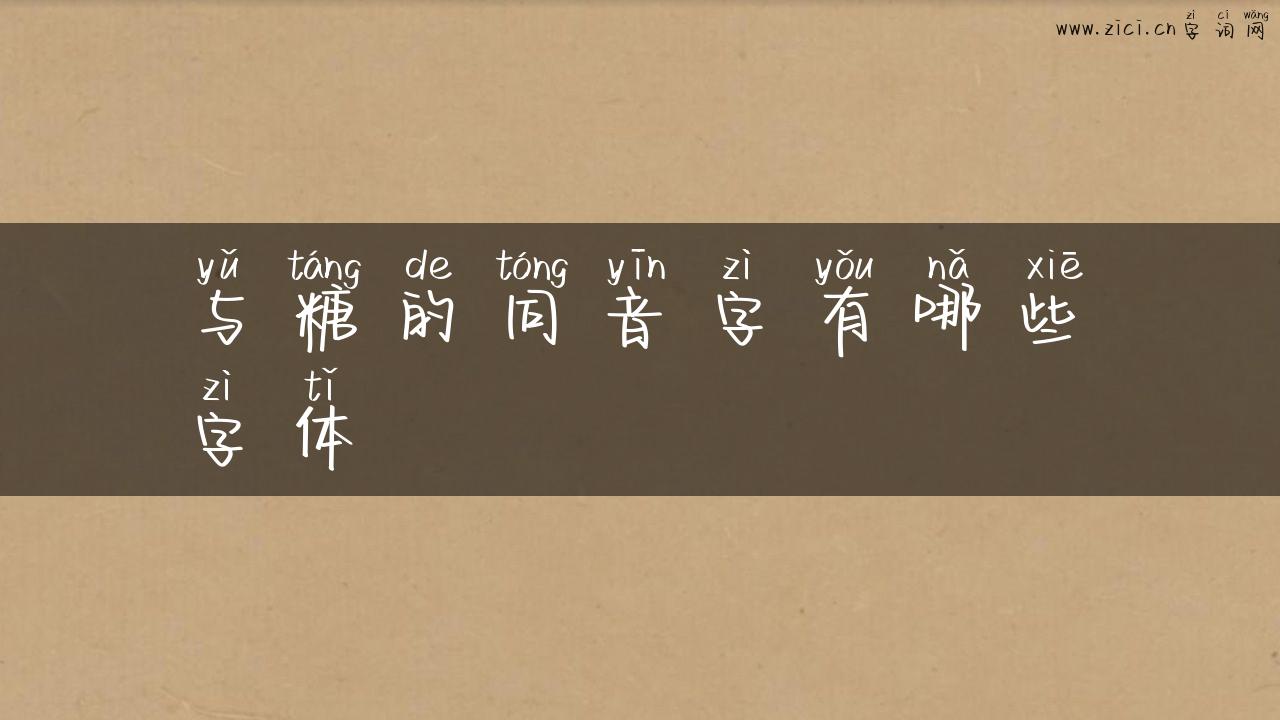 zì cí wǎng
www.zici.cn 字词网
yǔ táng de tóng yīn zì yǒu nǎ xiē
与糖的同音字有哪些
zì tǐ
字体